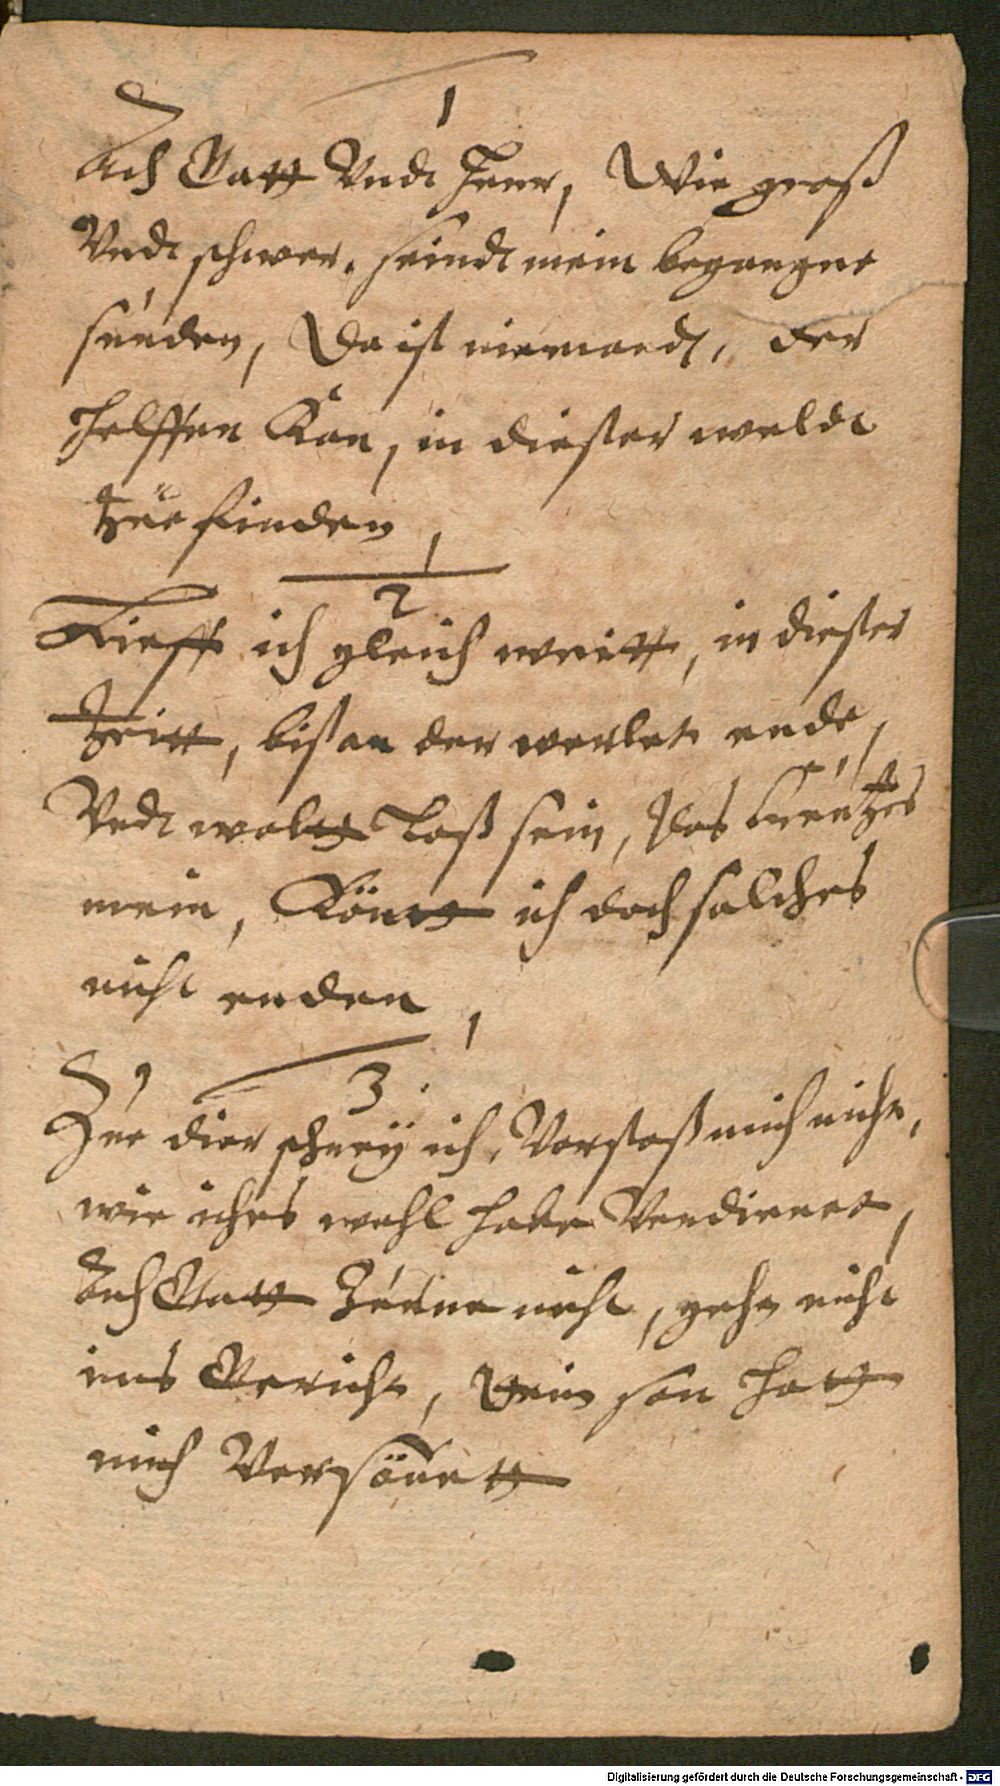 1
Ach Gott Undt Herr, Wie groß
Undt schwer, seindt mein begangne
sünden, Da ist niemandt, der
helffen Kan, in dießer weldt
tzue finden,
2
Lieff ich gleich weitt, in dießer
tzeitt, biß an der werlet ende,
Undt woltt loß sein, des Creutzes
mein, Köntt ich doch solches
nicht enden,
3.
Zue dier schrey ich, Verstoß mich nicht,
wie ichs wohl habe Verdienet,
Ach Gott Zürne nicht, gehe nicht
ins Gericht, dein son hatt
mich Versönett
Digitalisierung gefördert durch die Deutsche Forschungsgemeinschaft - DFG